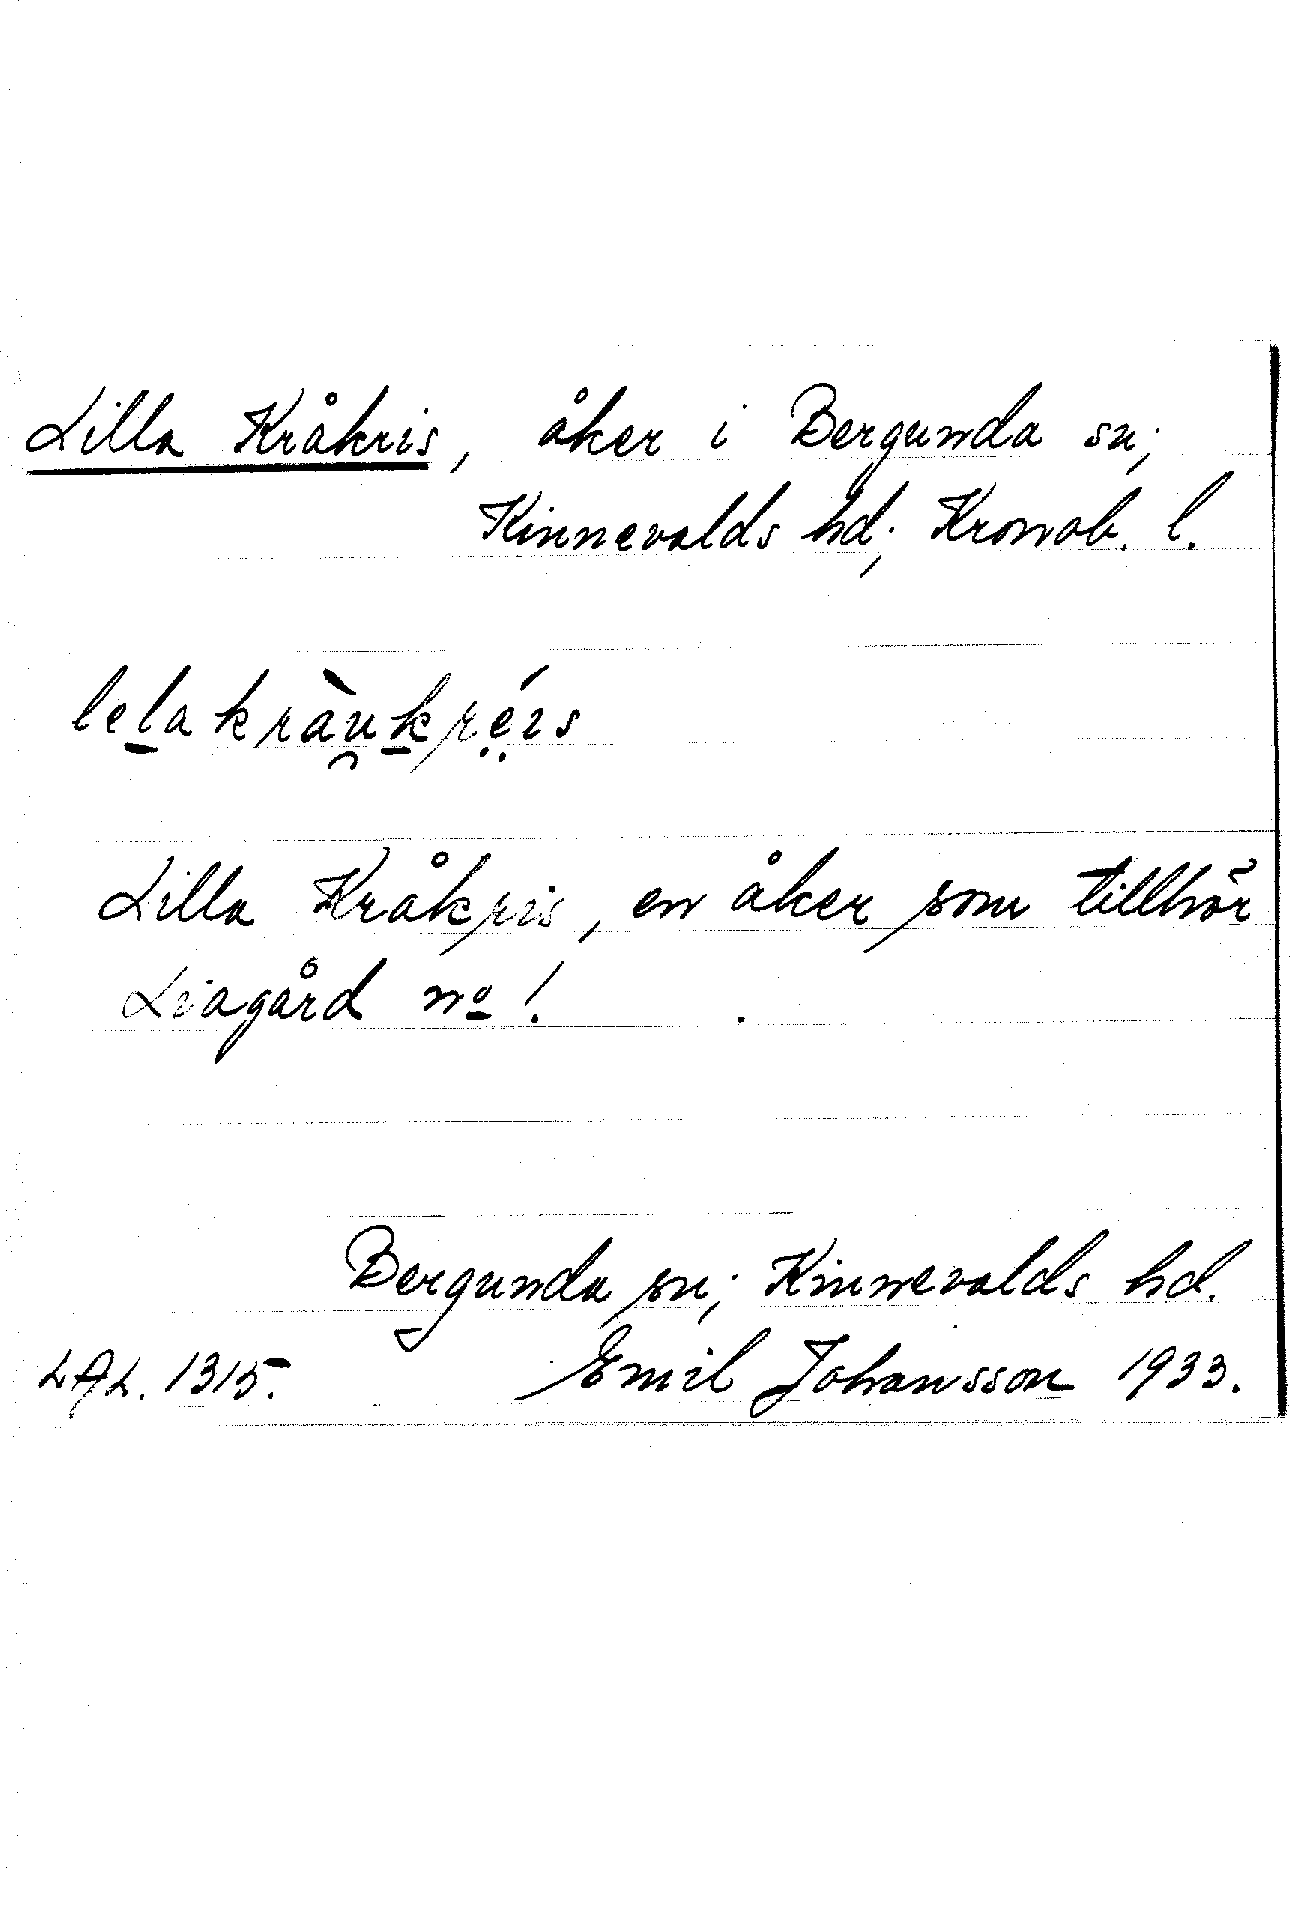 Lilla Kråkris, åker i Bergunda sn;
Kinnevalds hd; Kronob. l.
lel̲akràu̯k̲ré̤ıs
Lilla Kråkris, en åker som tillhör
Liagård no̲ 1.
Bergunda sn; Kinnevalds hd.
LAL. 1315. Emil Johansson 1933.